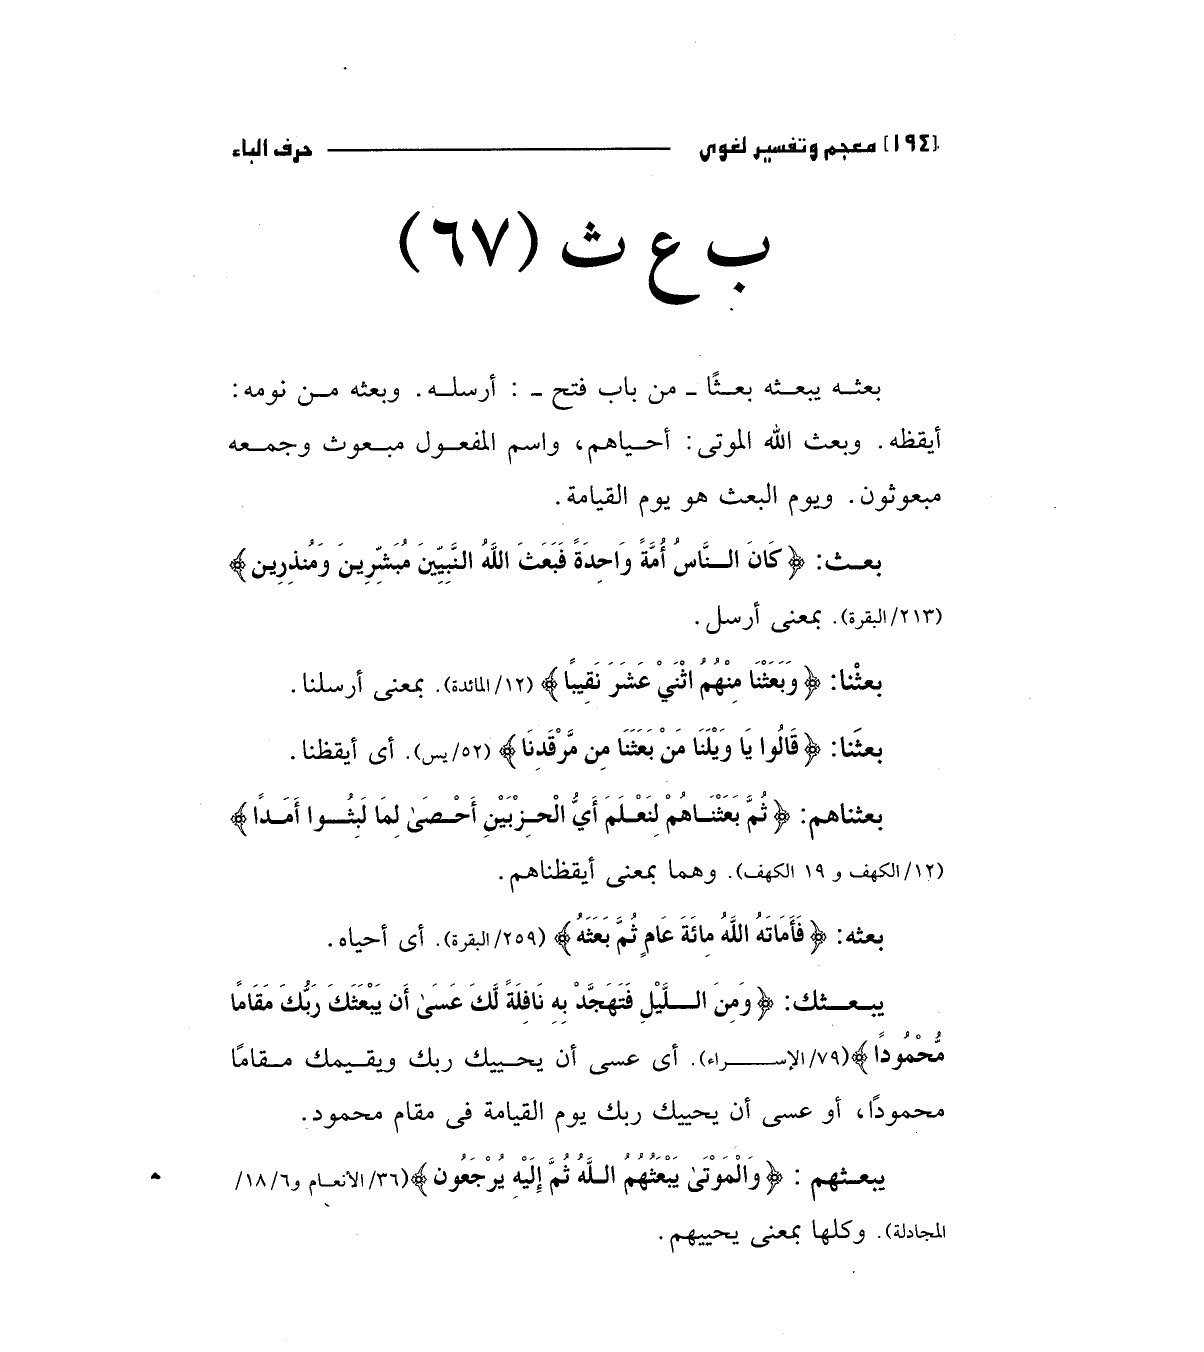 [١٩٤] معجم وتفسير لغوى حرف الباء
ب ع ث (٦٧)
بعثـه يبعـثه بعـثًا ـ من باب فتح ـ : أرسلـه. وبعثه مـن نومه:
أيقظه. وبعث الله الموتى: أحـياهم، واسم المفعـول مبـعوث وجمـعه
مبعوثون. ويوم البعث هو يوم القيامة.
بعـث: ﴿كَانَ الـنَّاسُ أُمَّةً وَاحِدَةً فَبَعَثَ اللَّهُ النَّبِيِّينَ مُبَشِّرِينَ وَمُنذِرِين﴾
(٢١٣/البقرة). بمعنى أرسل.
بعثْنا: ﴿وَبَعَثْنَا مِنْهُمُ اثْنَيْ عَشَرَ نَقِيبًا﴾ (١٢/المائدة). بمعنى أرسلنا.
بعثَنا: ﴿قَالُوا يَا وَيْلَنَا مَنْ بَعَثَنَا مِن مَّرْقَدِنَا﴾ (٥٢/يس). أى أيقظنا.
بعثناهم: ﴿ثُمَّ بَعَثْنَـاهُمْ لِنَعْـلَمَ أَيُّ الْحِـزْبَيْنِ أَحْـصَىٰ لِمَا لَبِثُـوا أَمَـدًا﴾
(١٢/الكهف و ١٩ الكهف). وهما بمعنى أيقظناهم.
بعثه: ﴿فَأَمَاتَهُ اللَّهُ مِائَةَ عَامٍ ثُمَّ بَعَثَهُ﴾ (٢٥٩/البقرة). أى أحياه.
يبـعـثك: ﴿وَمِنَ الـلَّيْلِ فَتَهَجَّدْ بِهِ نَافِلَةً لَّكَ عَسَىٰ أَن يَبْعَثَكَ رَبُّكَ مَقَامًا
مَّحْمُودًا﴾(٧٩/الإسـراء). أى عسى أن يحـييك ربك ويقـيمك مـقامًا
محمودًا، أو عسى أن يحييك ربك يوم القيامة فى مقام محمود.
يبعـثهم : ﴿وَالْمَوْتَىٰ يَبْعَثُهُمُ الـلَّهُ ثُمَّ إِلَيْهِ يُرْجَعُون﴾(٣٦/الأنعـام و٦/١٨/
المجادلة). وكلها بمعنى يحييهم.